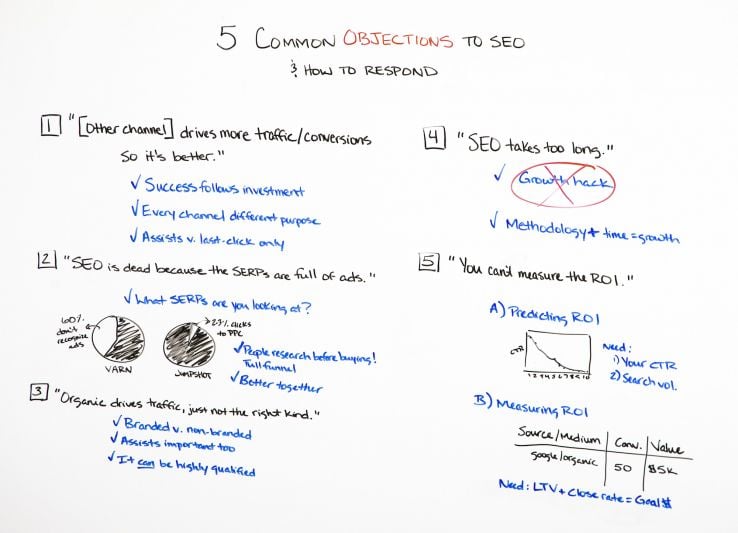 5 COMMON OBJECTIONS TO SEO
& HOW TO RESPOND
1 "[Other channel] drives more traffic/conversions
So it's better."
✓ Success follows investment
✓ Every channel different purpose
✓ Assists v. last-click only
2 "SEO is dead because the SERPs are full of ads."
✓ What SERPs are you looking at?
60%
don't
recognize
ads
VARN
JUMPSHOT
clicks
to PPC
✓ People research before buying!
Full funnel
✓ Better together
3 "Organic drives traffic, just not the right kind."
✓ Branded v. non-branded
✓ Assists important too
✓ It can be highly qualified
4 "SEO takes too long."
✓ Growth hack
✓ Methodology + time = growth
5 "You can't measure the ROI."
A) Predicting ROI
CTR
1 2 3 4 5 6 7 8 9 10
Need:
1) Your CTR
2) Search vol.
B) Measuring ROI
Source/Medium Conv. Value
google/organic 50 $5K
Need: LTV + close rate = Goal $